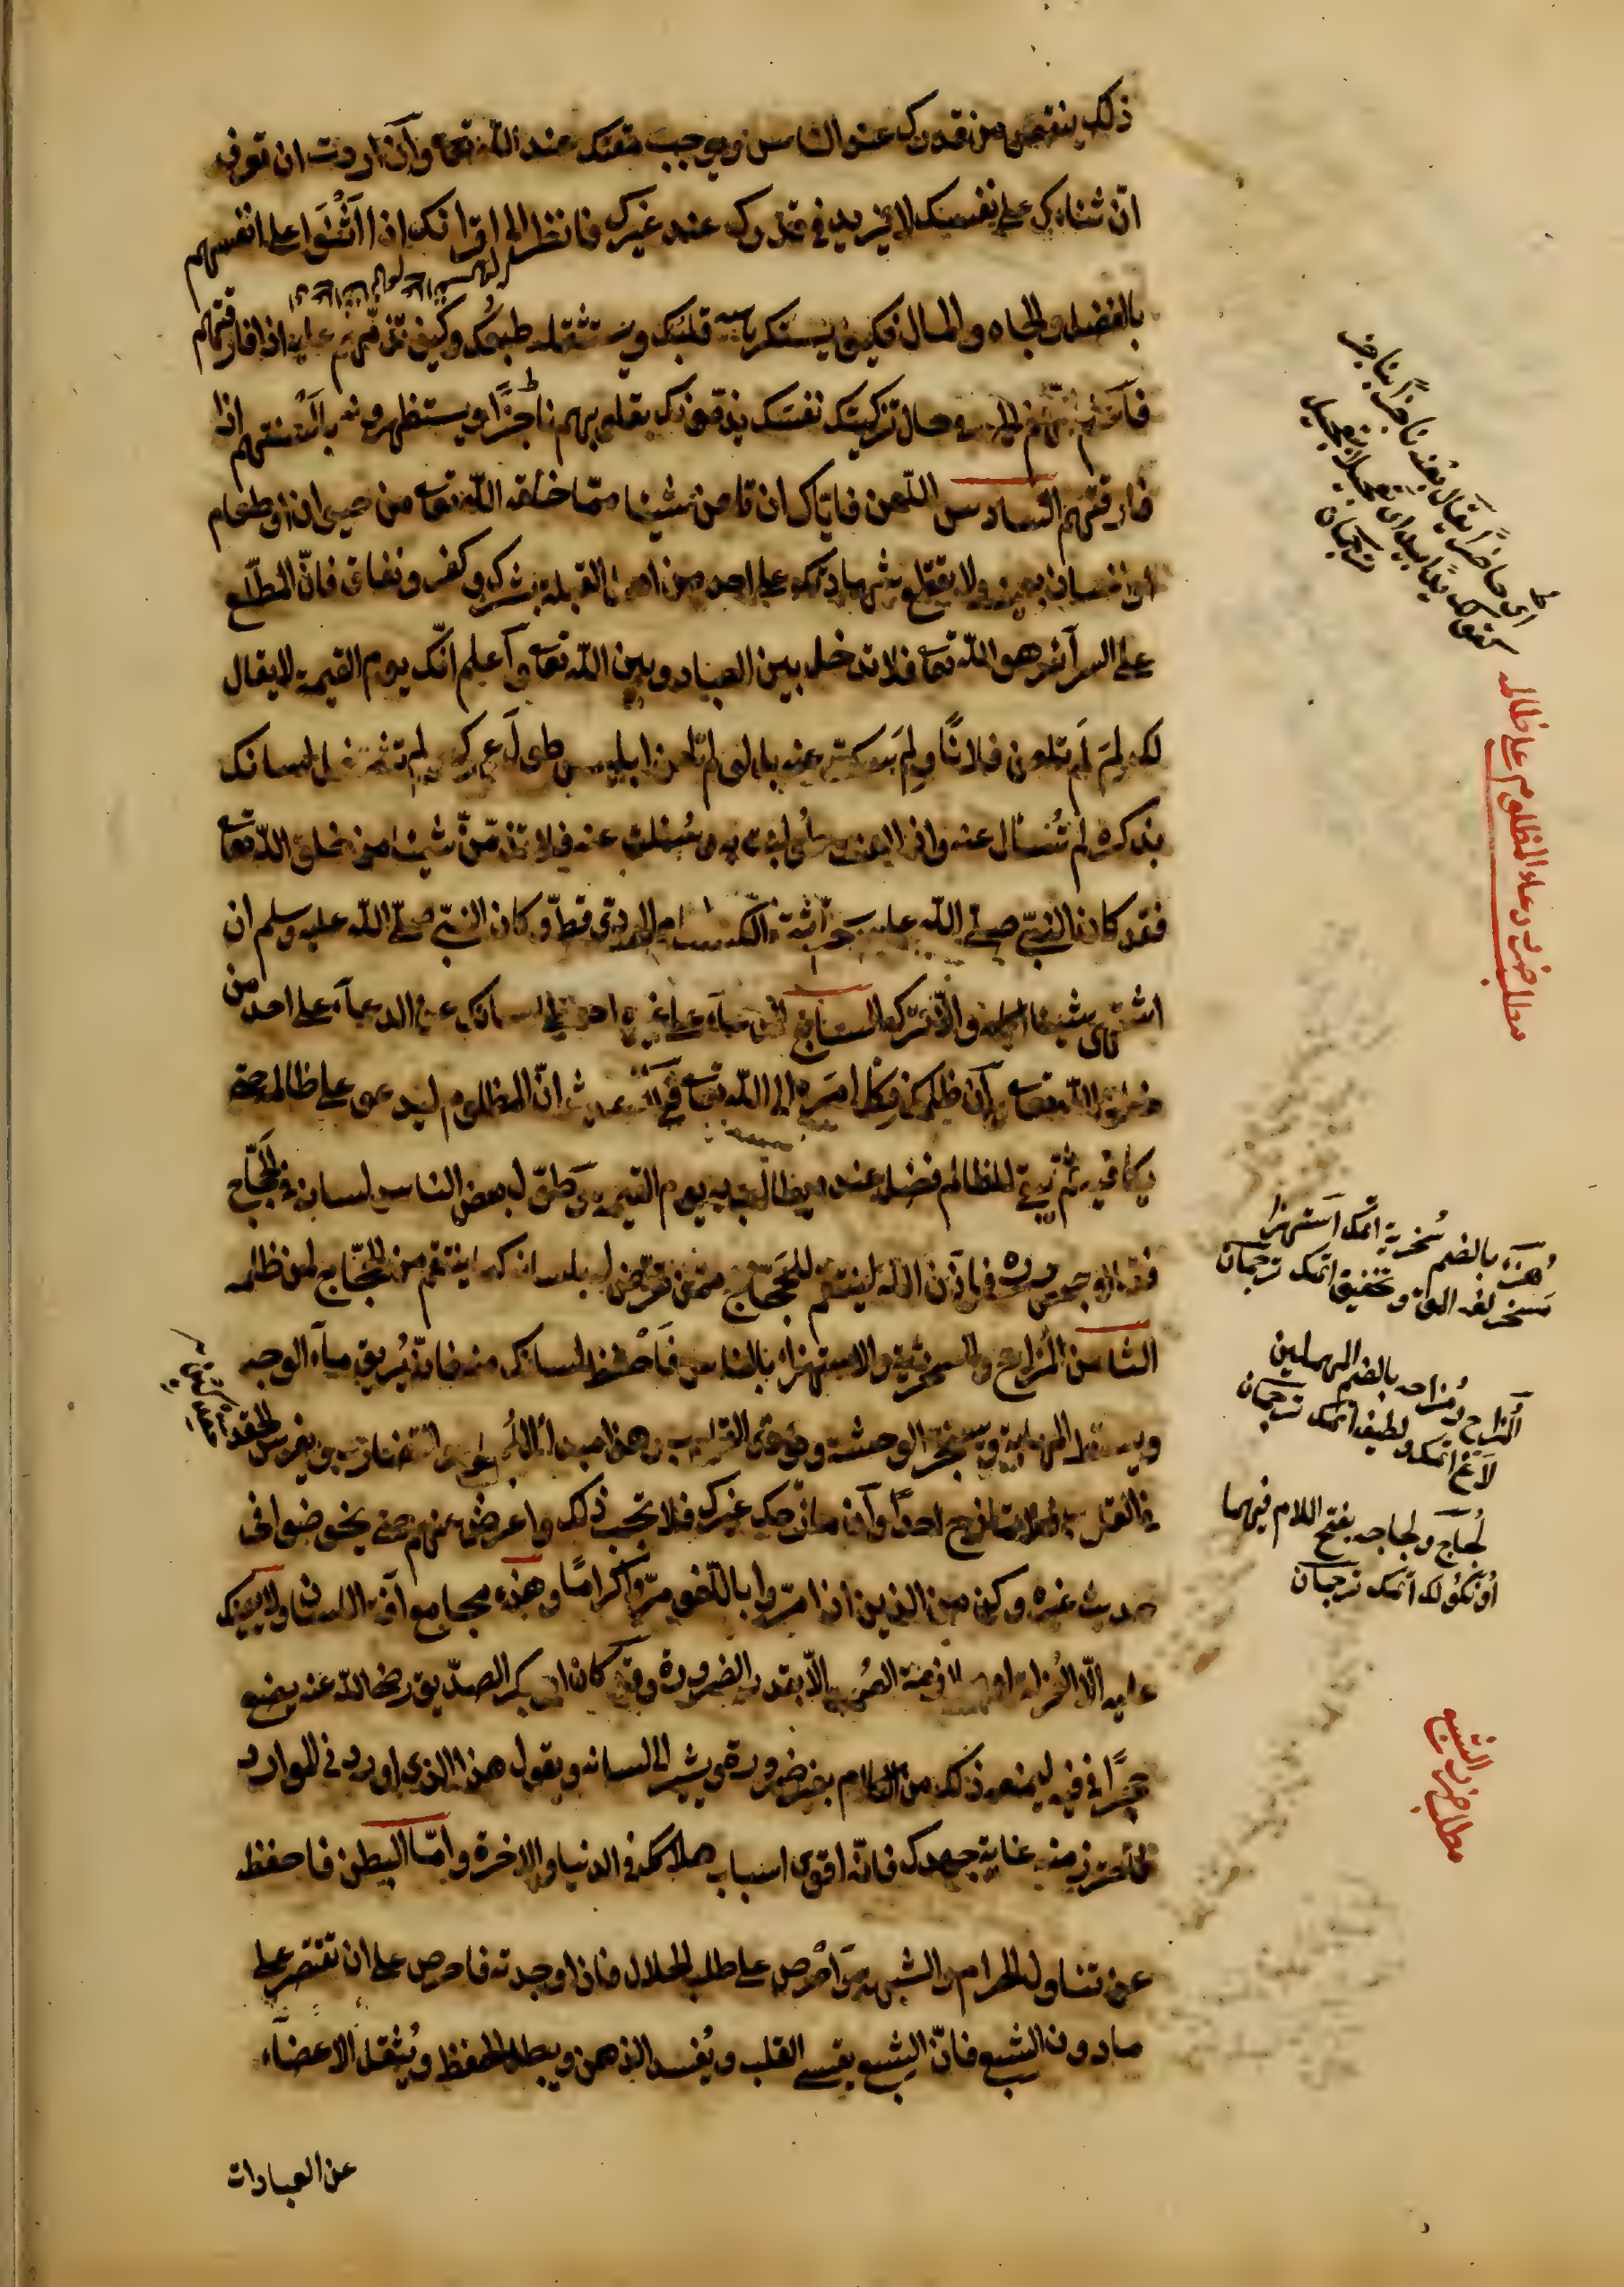 ذلك ينقص من قدرك عند الناس ويوجب مقتك عند الله تعا وآن اردت ان تعرف
انّ ثناءك على نفسك لا يزيد في قدرك عند غيرك فانظر الى اقرانك اذا اَثْنَوا على انفسهم
بالفضل والجاه والمال فكيف يستنكره قلبك ويستثقله طبعُك وكيف تذمّهم عليه اذا فارقتهم
فآعلم انّهم في حال تزكيتك نفسَك يذمّونك بقلوبهم ناجزًا ويستظهرونه بألسنتهم اذا
فارقتهم السادس اللعن فايّاك ان تلعن شيئا ممّا خلقه الله تعا من حيوان او طعام
او انسان بعينه ولا تقطع بشهادتك على احد من اهل القبلة بشرك وكفر ونفاق فانّ المطّلع
على السرآئر هو الله تعا فلا تدخل بين العباد وبين الله تعا وآعلم انّك يوم القيمة لا يقال
لك لِمَ لَم تلعن فلانًا ولِمَ سكتّ عنه بل لو لم تلعن ابليس طول عمرك ولم تشغل لسانك
بذكره لم تُسئال عنه واذا لعنت احدًا به وسُئلت عنه فلا تذمّنّ شيئا من خلق الله تعا
فقد كان النبيّ صلّى الله عليه يذمّ الردئ قطّ وكان النبيّ صلّى الله عليه وسلم ان
اشتهى شيئا اكله والّا تركه السابع الدعآء على غيره احفظ لسانك عن الدعآء على احد من
خلق الله تعا وآن ظلمك فكل امره الى الله تعا ففي الحديث انّ المظلوم ليدعو على ظالمه حتّى
يكافيه ثمّ يبقى للظالم فضل عنده يطالب به يوم القيمة وطوّل بعض الناس لسانه في الحَجّاج
فقال بعضهم انّ الله لينتقم للحَجّاج ممّن تعرّض له بلسانه كما ينتقم من الحجّاج لمن ظلمه
الثامن المُزاح والسخرية والاستهزاء بالناس فَاحْفظ لسانك منه فانّه يُريق ماء الوجه
ويسقط المهابة ويستجرّ الوحشة ويؤذى القلوب وهذا مبدأ اللجاج والتضارب ويغرس الحقد
في القلب فلا تمازح احدًا وآن مازحك غيرك فلا تجب ذلك واعرض عنهم حتى يخوضوا في
حديث غيره وكن من الذين اذا مرّوا باللّغو مرّوا كرامًا وهذه مجامع آفة اللسان ولا يعينك
عليه الّا العُزلة او ملازمة الصمت الّا بقدر الضرورة وقد كان ابو بكر الصدّيق رضى الله عنه يضع
حجرًا في فيه ليمنعه ذلك من الكلام بغير ضرورة ويشير الى لسانه ويقول هذا الذي اورد في الموارد
فاحترز منه غاية جهدك فانّه اقوى اسباب هلاكك في الدنيا والاخرة وامّا البطن فاحفظه
عن تناول الحرام والشبهة واحْرص على طلب الحلال فاذا وجدته فاحرص على ان تقتصر على
مادون الشبع فانّ الشبع يقسى القلب ويُفسد الذهن ويبطل الحفظ ويُثقل الاعضآء
عن العبادات
اى حاضرًا يقال بعد ناجزًا بناجز
كقولك يدًا بيد اى تعجيلا بتعجيل
ترجمان
مطلب ضرب دعاء المظلوم على ظالمه
هُزء بالضم سُخرية اتمك استهزا
ترجمان
اَلمُزاح و مُزاحه بالضم المهملين
لاغ اتمك و لطيفه اتمك ترجمان
لَجاج و لجاجه بفتح اللام فيهما
ترجمان
مطلب ضرب الشبع